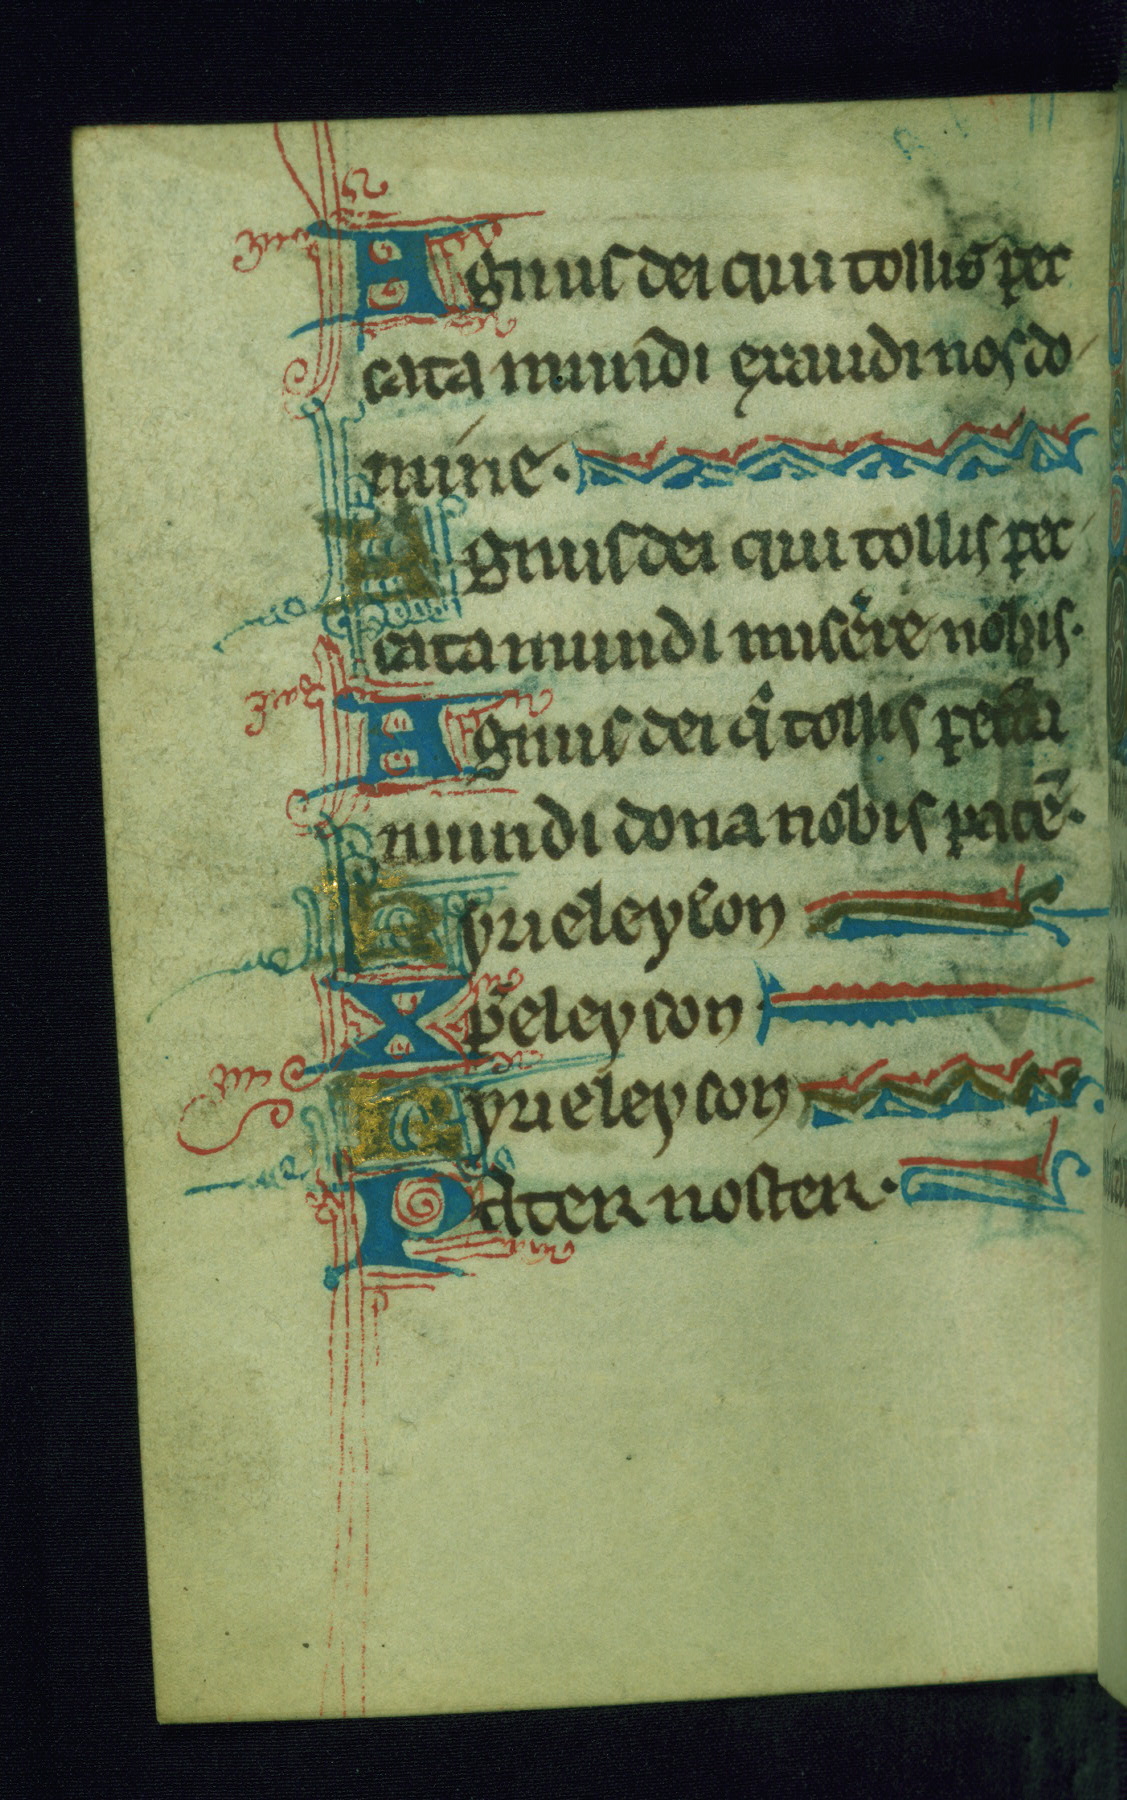 Agnus dei qui tollis pec
cata mundi exaudi nos do
mine.
Agnus dei qui tollis pec
cata mundi miserere nobis.
Agnus dei qͥ tollis peccata
mundi dona nobis pacē.
Kyrieleyson
Xp̄eleyson
Kyrieleyson
Pater noster.